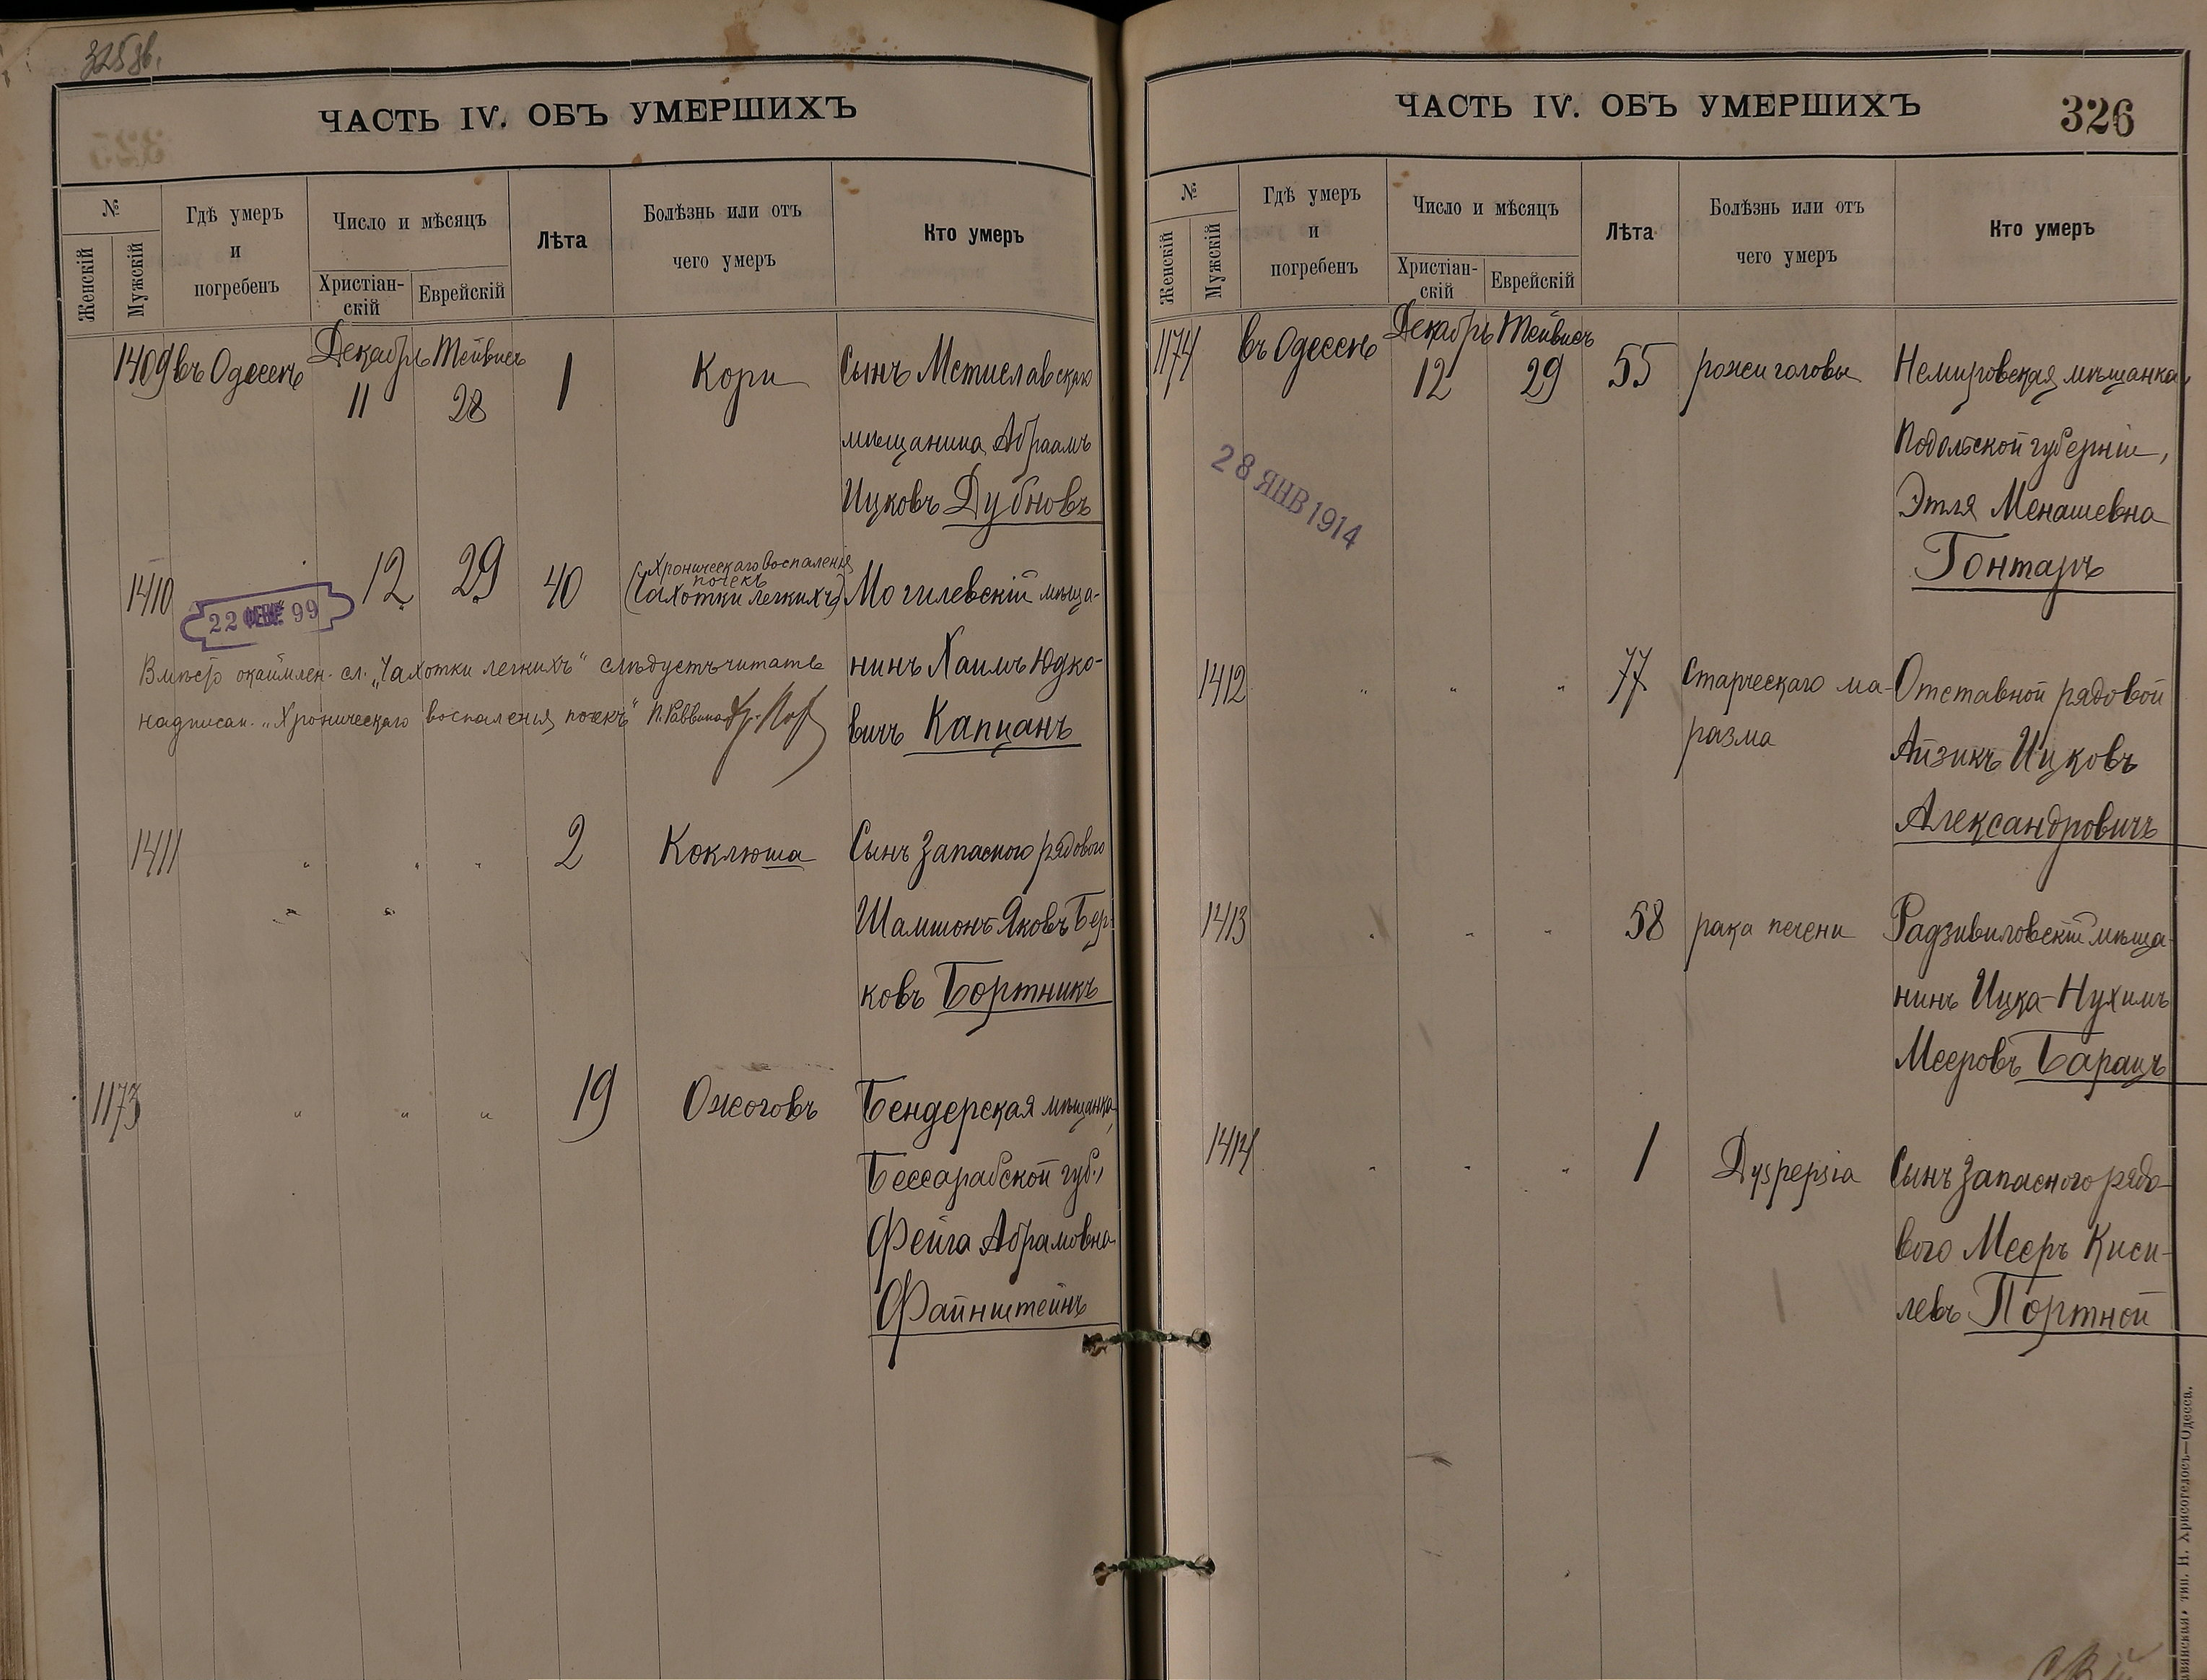 325 об.
ЧАСТЬ IV. ОБЪ УМЕРШИХЪ
№
Женскій
Мужскій
Гдѣ умеръ
и
погребенъ
Число и мѣсяцъ
Христіан-
скій
Еврейскій
Лѣта
Болѣзнь или отъ
чего умеръ
Кто умеръ
1409 въ Одессѣ Декабрь 11 Тейвисъ 28 1 Кори Сынъ Мстиславскаго
мѣщанина Абраамъ
Ицковъ Дубновъ
1410 12 29 40 Хроническаго воспаленія
почекъ
(Чахотки легкихъ) Могилевскій мѣща-
22 ФЕВР 99
нинъ Хаимъ Юдко-
вичъ Капцанъ
Вмѣсто окаймлен. сл. „Чахотки легкихъ“ слѣдуетъ читать
надписан. „Хроническаго воспаленія почекъ“ П. Раввина
1411 " " " 2 Коклюша Сынъ запасного рядового
Шамшонъ Яковъ Бер-
ковъ Бортникъ
1173 " " " 19 Ожоговъ Бендерская мѣщанка,
Бессарабской губ.,
Фейга Абрамовна
Файнштейнъ
ЧАСТЬ IV. ОБЪ УМЕРШИХЪ
326
№
Женскій
Мужскій
Гдѣ умеръ
и
погребенъ
Число и мѣсяцъ
Христіан-
скій
Еврейскій
Лѣта
Болѣзнь или отъ
чего умеръ
Кто умеръ
1174 въ Одессѣ Декабрь 12 Тейвисъ 29 55 рожи головы Немировская мѣщанка,
Подольской губерніи,
Этля Менашевна
Гонтарь
28 ЯНВ 1914
1412 " " " 77 Старческаго ма- Отставной рядовой
разма Айзикъ Ицковъ
Александровичъ
1413 " " " 58 рака печени Радзивиловскій мѣща-
нинъ Ицка-Нухимъ
Мееровъ Барацъ
1414 " " " 1 Dyspepsia Сынъ запасного рядо-
вого Мееръ Киси-
левъ Портной
тип. Н. Хрисогелосъ—Одесса.